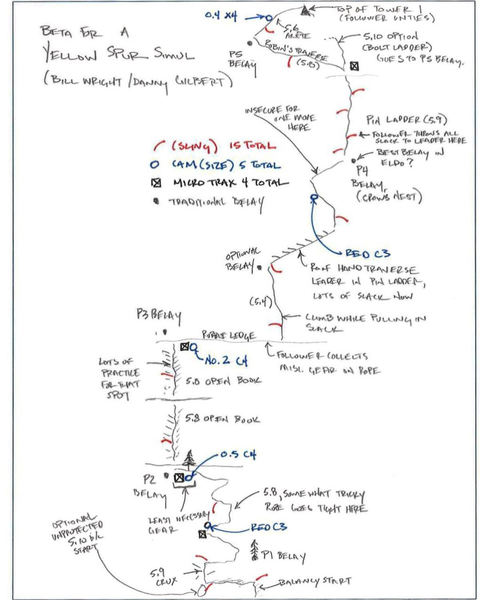 BETA FOR A
YELLOW SPUR SIMUL
(BILL WRIGHT/DANNY GILBERT)
0.4 X4
5.6
ARETE
TOP OF TOWER 1
(FOLLOWER UNTIES)
P5
BELAY
ROBIN'S TRAVERSE
(5.8)
5.10 OPTION
(BOLT LADDER)
GOES TO P5 BELAY.
INSECURE FOR
ONE MOVE
HERE
PIN LADDER (5.9)
FOLLOWER THROWS ALL
SLACK TO LEADER HERE
(SLING) 15 TOTAL
CAM (SIZE) 5 TOTAL
MICRO TRAX 4 TOTAL
TRADITIONAL BELAY
BEST BELAY IN
ELDO?
P4
BELAY,
(CROWS NEST)
RED C3
OPTIONAL
BELAY
ROOF HAND TRAVERSE
LEADER IN PIN LADDER,
LOTS OF SLACK NOW
(5.4)
CLIMB WHILE PULLING IN
SLACK
P3 BELAY
LEDGE
NO. 2 C4
FOLLOWER COLLECTS
MISC. GEAR ON ROPE
LOTS OF
PRACTICE
FOR THAT
SPOT
5.8 OPEN BOOK
5.8 OPEN BOOK
0.5 C4
P2
BELAY
LEAST NECESSARY
GEAR
5.8, SOMEWHAT TRICKY
ROPE GOES TIGHT HERE
RED C3
OPTIONAL
UNPROTECTED
5.10 b/c
START
P1 BELAY
5.9
CRUX
BALANCY START